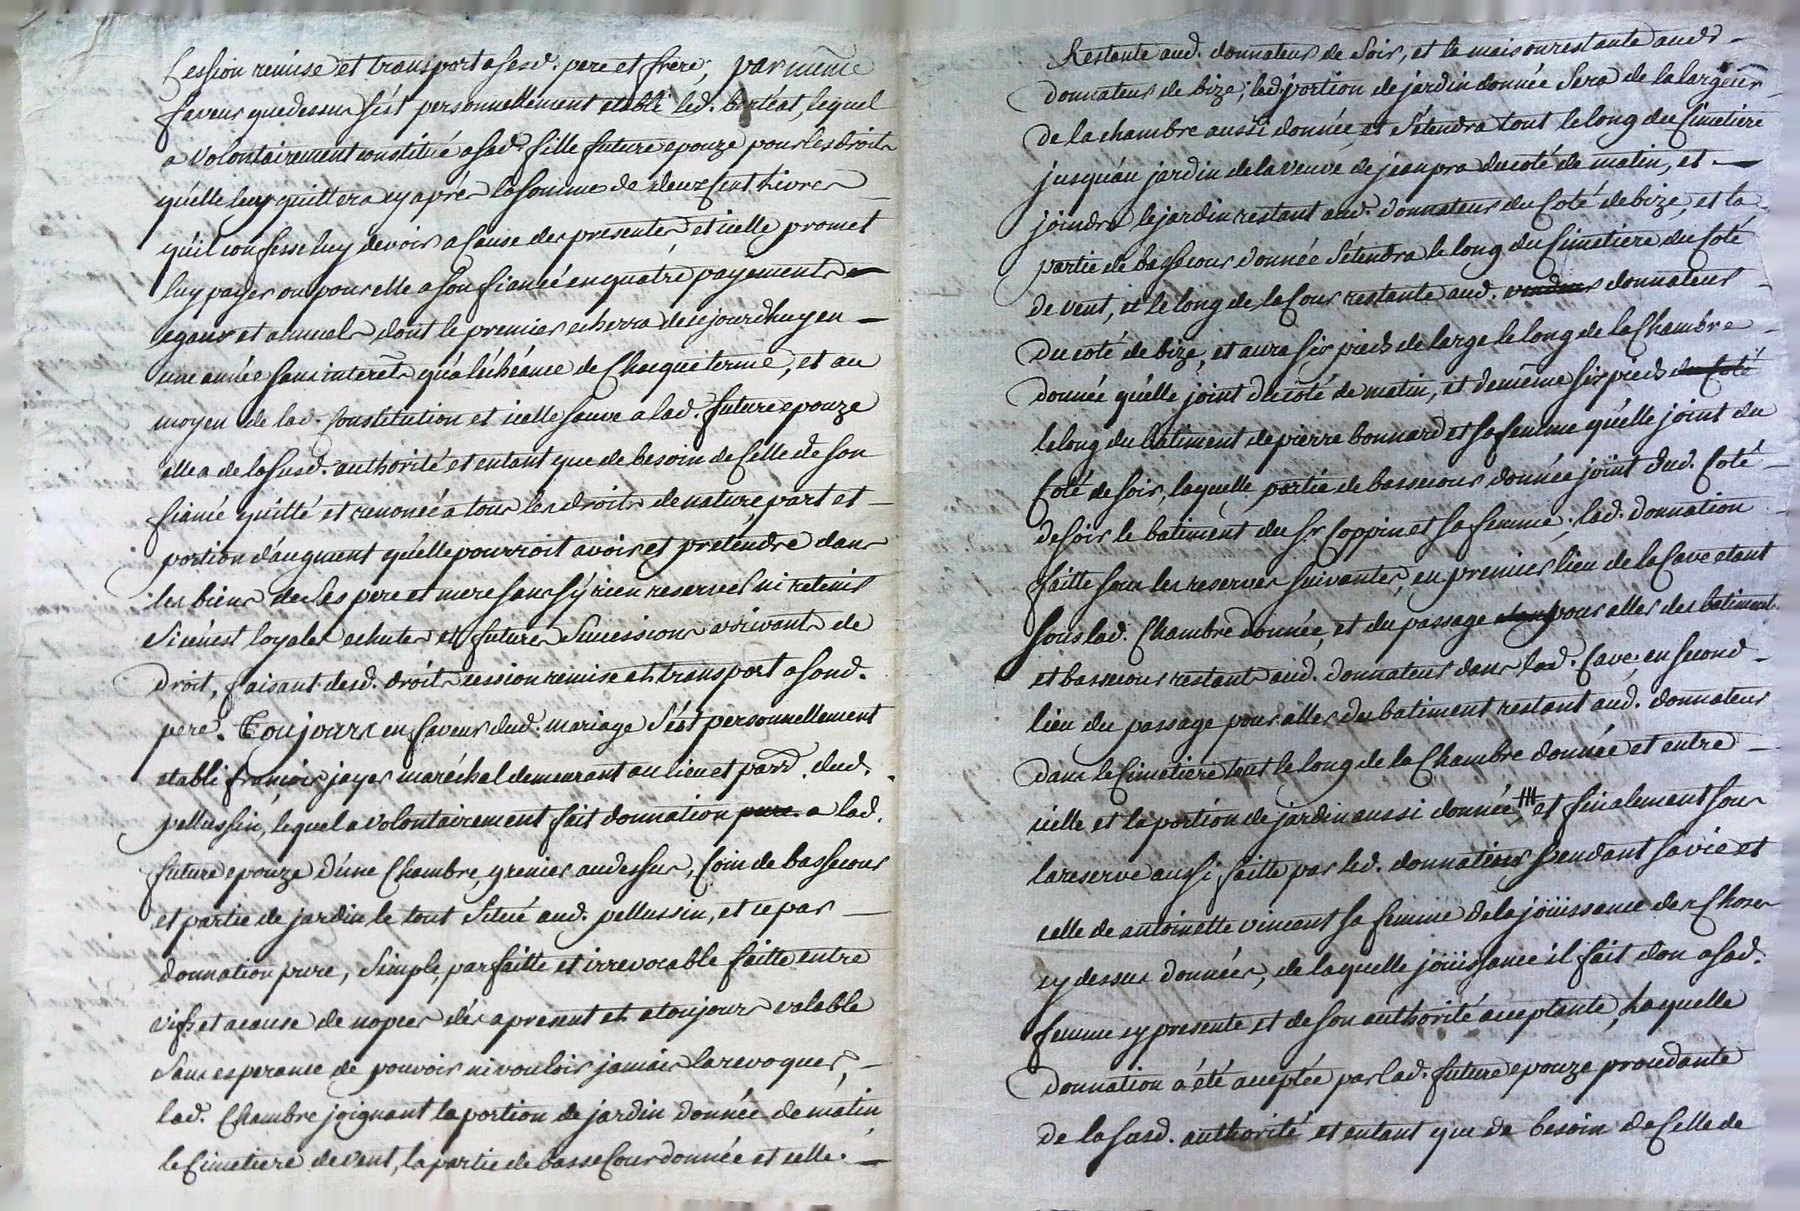 Cession remise et transport a sesd. pere et frere, par même
faveur que dessus s'est personnellement etabli led. bertéat, lequel
a volontairement constitué a sad. fille future epouze pour les droits
qu'elle luy quittera cy aprés la somme de deux cent livres
qu'il confesse luy devoir a cause des presentes et icelle promet
luy payer ou pour elle a son fiancé en quatre payements
egaux et annuels dont le premier echerra de ce jourdhuy en
une année sans interêts qu'a l'échéance de chacque terme, et au
moyen de lad. constitution et icelle sauve a lad. future epouze
elle a de la susd. authorité et entant que de besoin de celle de son
fiancé quitté et renoncé a tous les droits de nature, part et
portion d'augment qu'elle pourroit avoir et pretendre dans
les biens de ses pere et mere sans s'y rien reserver ni retenir
si ce n'est loyales echutes et futures successions arivants de
droit, faisant desd. droits cession remise et transport a sond.
pere. Toujours en faveur dud. mariage s'est personnellement
etabli françois jayer maréchal demeurant au lieu et parr. dud.
pellussin, lequel a volontairement fait donnation pure a lad.
future epouze d'une Chambre, grenier audessus, Coin de bassecour
et partie de jardin le tout situé aud. pellussin, et ce par
donnation pure, simple, parfaitte et irrevocable faitte entre
vifs et a cause de nopces dés apresent et a toujours valable
sans esperance de pouvoir ni vouloir jamais la revoquer,
lad. Chambre joignant la portion de jardin donnée de matin,
le Cimetiere de vent, la partie de basse Cour donnée et celle
Restante aud. donnateur de soir, et la maison restante aud.
donnateur de bize, lad. portion de jardin donnée sera de la largeur
de la chambre aussi donnée, et s'étendra tout le long du Cimetiere
jusqu'au jardin de la veuve de jean pra du coté de matin, et
joindra le jardin restant aud. donnateur du Coté de bize, et la
partie de bassecour donnée s'étendra le long du Cimetiere du Coté
de vent, et le long de la Cour restante aud. vendeur donnateur
du coté de bize, et aura six pieds de large le long de la Chambre
donnée qu'elle joint du côté de matin, et de même six pieds du Coté
le long du batiment de pierre bonnard et sa femme qu'elle joint du
Coté de soir, laquelle partie de bassecour donnée joint dud. Coté
de soir le batiment du Sr Coppin et sa femme; lad. donnation
faitte sous les reserves suivantes, en premier lieu de la Cave etant
sous lad. Chambre donnée, et du passage pour aller des batiment
et bassecour restants aud. donnateur dans lad. Cave; en second
lieu du passage pour aller du batiment restant aud. donnateur
dans le Cimetiere tout le long de la Chambre donnée et entre
icelle et la portion de jardin aussi donnée et finalement sous
la reserve aussi faitte par led. donnateur pendant sa vie et
celle de antoinette vincent sa femme de la joüissance des choses
cy dessus données, de laquelle joüissance il fait don a sad.
femme cy presente et de son authorité acceptante, Laquelle
donnation a été acceptée par lad. future epouze procedante
de la susd. authorité et entant que de besoin de celle de